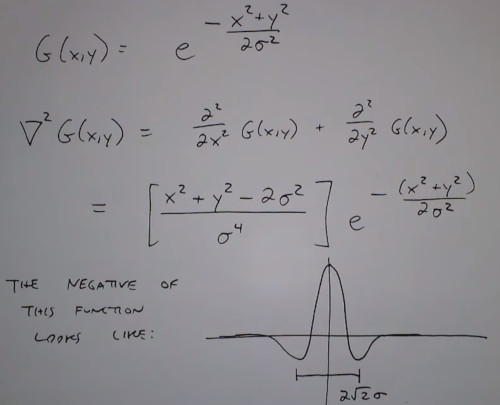 G(x,y) = e^{-\frac{x^2+y^2}{2σ^2}}
∇^2 G(x,y) = \frac{∂^2}{∂x^2} G(x,y) + \frac{∂^2}{∂y^2} G(x,y)
= \left[\frac{x^2+y^2-2σ^2}{σ^4}\right] e^{-\frac{(x^2+y^2)}{2σ^2}}
THE NEGATIVE OF
THIS FUNCTION
LOOKS LIKE:
2√2σ